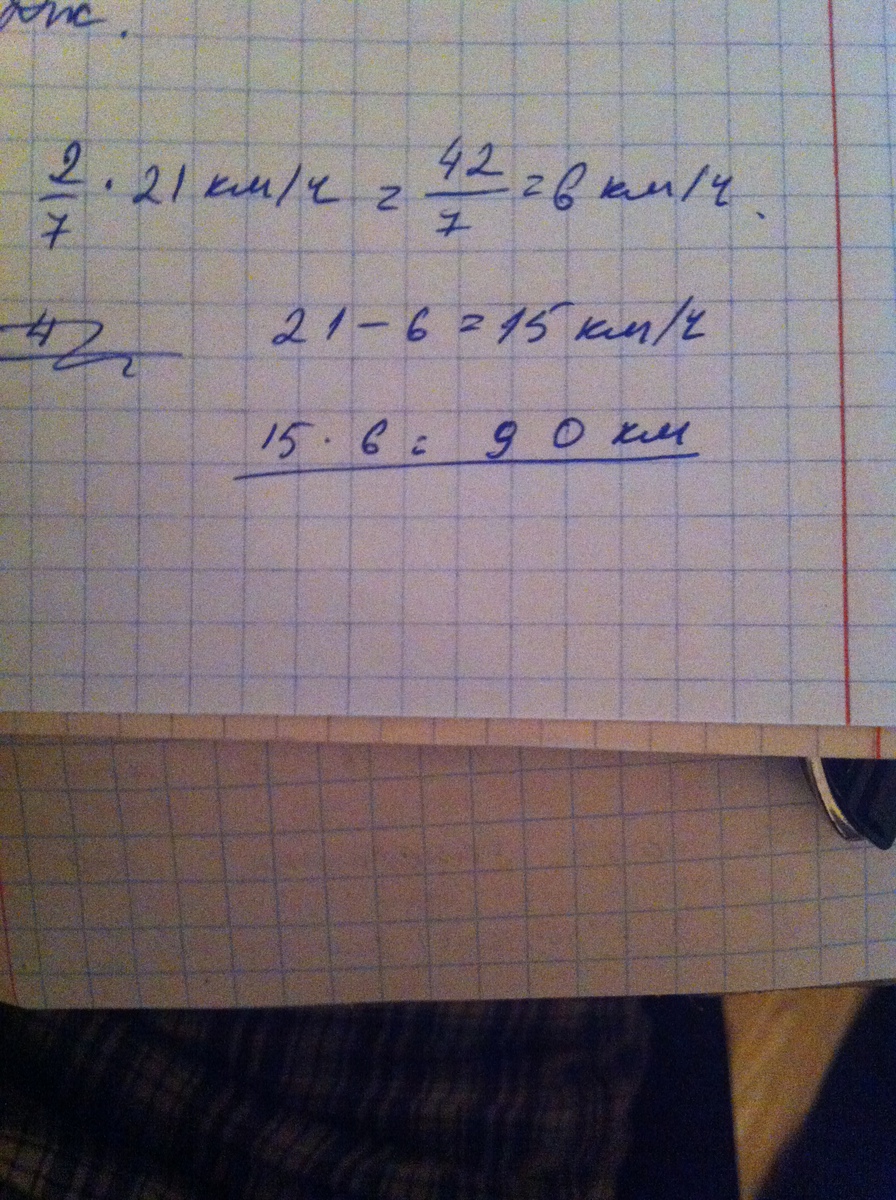 2/7 · 21 км/ч = 42/7 = 6 км/ч.
21 - 6 = 15 км/ч
15 · 6 = 90 км